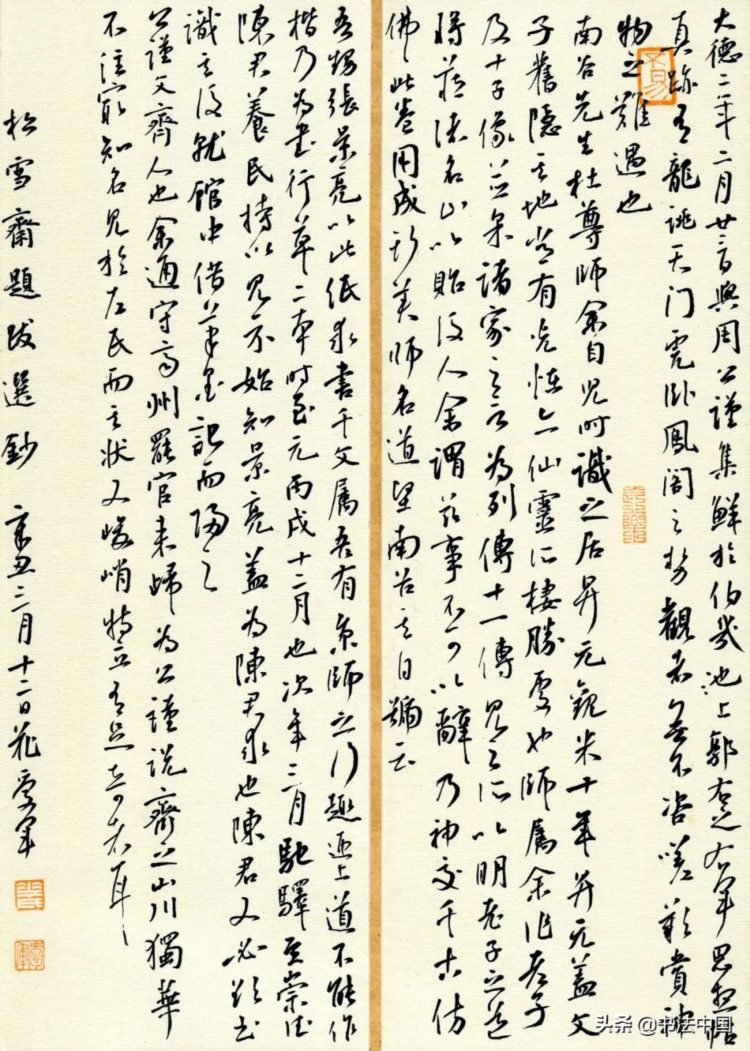 大德二年二月廿三日與周公謹集鮮於伯幾池上郭右之右軍思想帖
真跡有龍跳天门虎卧鳳阁之势觀者無不咨嗟歎賞神
物之難遇也
南谷先生杜尊師余自兒時識之居昇元觀来十年昇元蓋文
子舊隱之地嘗有光怪亦仙靈所棲勝處也師屬余作老子
及十子像並采諸家之言為列傳十一傳見之所以明老子之道
將藏諸名山以貽後人余謂茲事不可以辭乃神交千古仿
佛此卷用成斯美師名道堅南谷其自號云
吾甥張景亮以此紙求書千文属吾有京師之行趣迫上道不能作
楷乃為書行草二本时至元丙戌十二月也次年三月馳驛至崇德
陳君養民持以見示始知景亮蓋為陳君求也陳君又必欲書
識其後就館中借筆墨記而歸之
公謹父齊人也余通守齊州罷官來歸為公謹說齊之山川獨華
不注最知名見於左氏而其状又峻峭特立有足奇者耳
松雪齋題跋選鈔 辛丑三月十二日花愛軍
头条 @书法中国